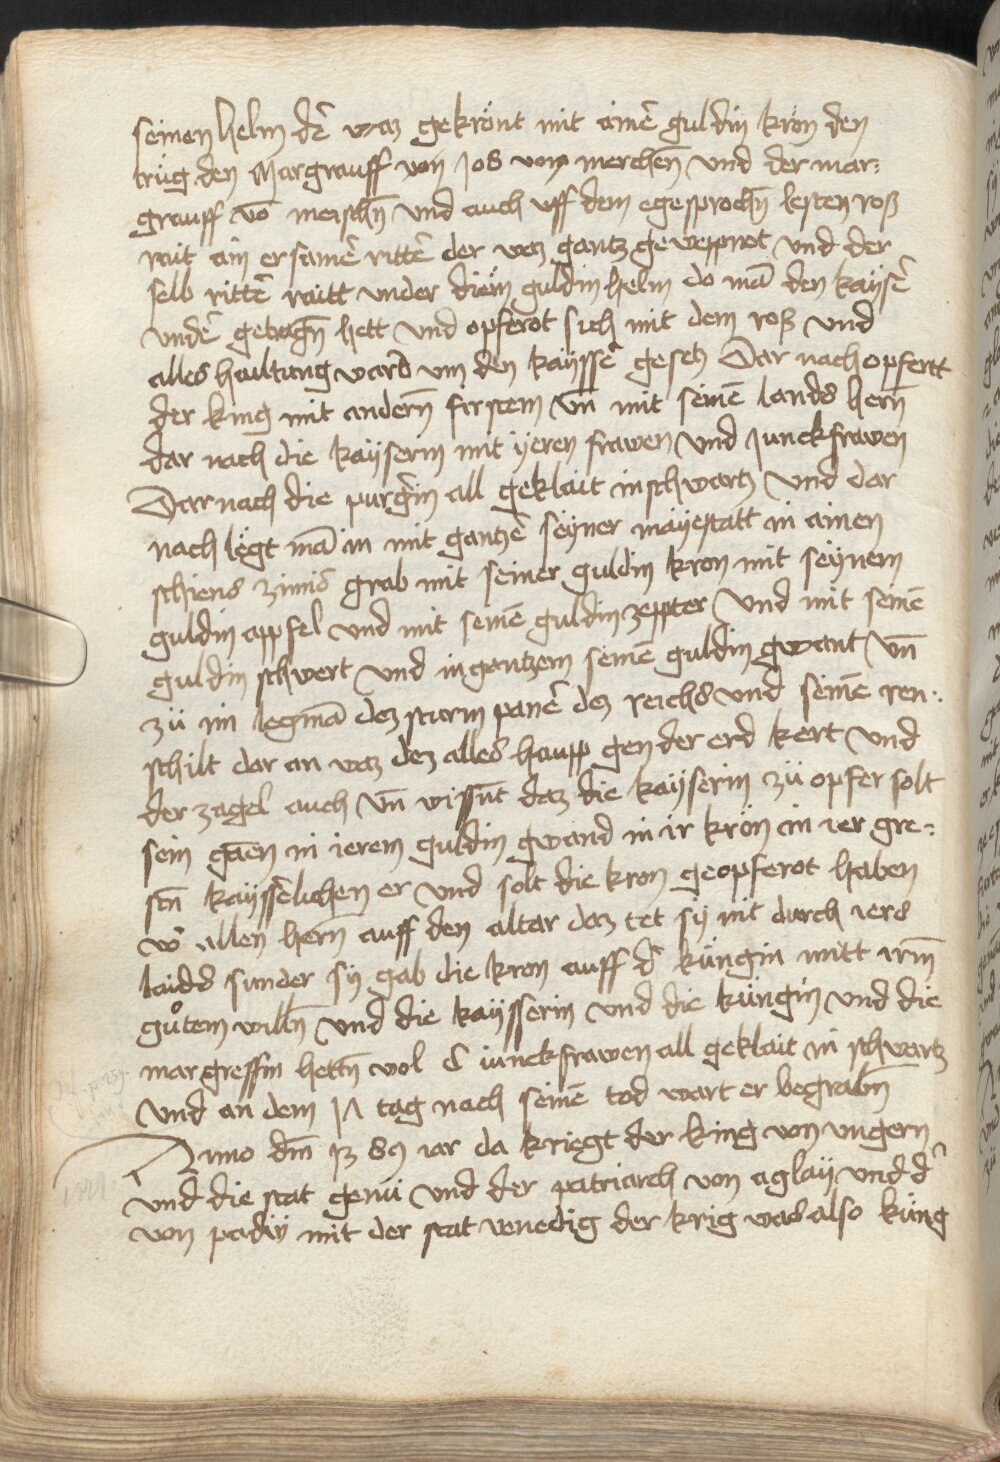 seinen helm d̄e waz gekrönt mit aimē guldin krön den
trüg den Margrauff von Jos vom merchen̄ vnd der mar:
grauff vō meischn̄ vnd auch vff dem egesprochn̄ lesten roß
rait ain ersamē rittē der waz gantz geweppnot vnd der
selb rittē raitt vnder diem guldin helm do mā den kaysē
vndē getragn̄ hett vnd opferot sich mit dem roß vnd
alles haultung ward vm den kayssē gesetz Dar nach opfertt
der king mit andern̄ firstem vn̄ mit seinē lands hern̄
dar nach die kayserin mit yeren frawen vnd Junckfrawen
Dar nach die purgēin all geklait in schwartz vnd dar
nach legt mā in mit gantzē seyner mayestatt in ainen
schiens zinnis grab mit seiner guldin kron mit seynem
guldin appfel vnd mit seinē guldin zeppter vnd mit seinē
guldin schwert vnd in gantzem seinē guldin gwant vn̄
zü im legt mā dez sturm panē dez reichs vnd seinē ren:
schilt dar an waz dez alles haupp gen der erd kert vnd
der zagel auch vn̄ wissn̄t daz die kayserin zü opfer solt
sein gaen̄ in ierem guldin gwand in ir krön in ier gre:
stn̄ kayssēlichen er vnd solt die kron geopferot haben
vō allen hern̄ auff den altar daz tet sy nit durch iers
laids sunder sy gab die kron auff d̄ küngin mitt irm̄
gůtem willn̄ vnd die kaysserin vnd die küngin vnd die
margreffin hettn̄ wol c iunckfrawen all geklait in schwartz
vnd an dem 17 tag nach seinē tod wart er begrabn̄
Anno dm̄ 13 89 iar da kriegt der king von vngern
vnd die stat genü vnd der patriarch von aglay vnd d̄
von padw mit der stat venedig der krig was also küng